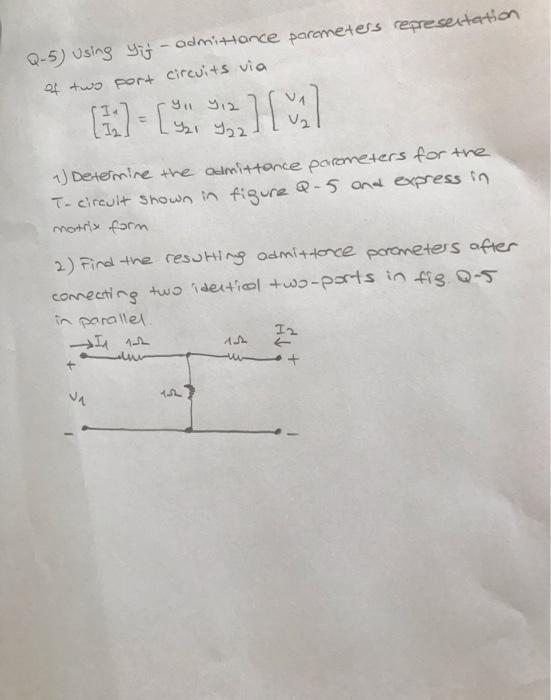 Q-5) Using yij - admittance parameters representation
of two port circuits via
[I1 I2] = [y11 y12 y21 y22] [V1 V2]
1) Determine the admittance parameters for the
T- circuit shown in figure Q-5 and express in
matrix form
2) Find the resulting admittance parameters after
connecting two identical two-ports in fig. Q-5
in parallel.
→I1 1Ω 1Ω I2 ←
+ +
V1 1Ω
- -